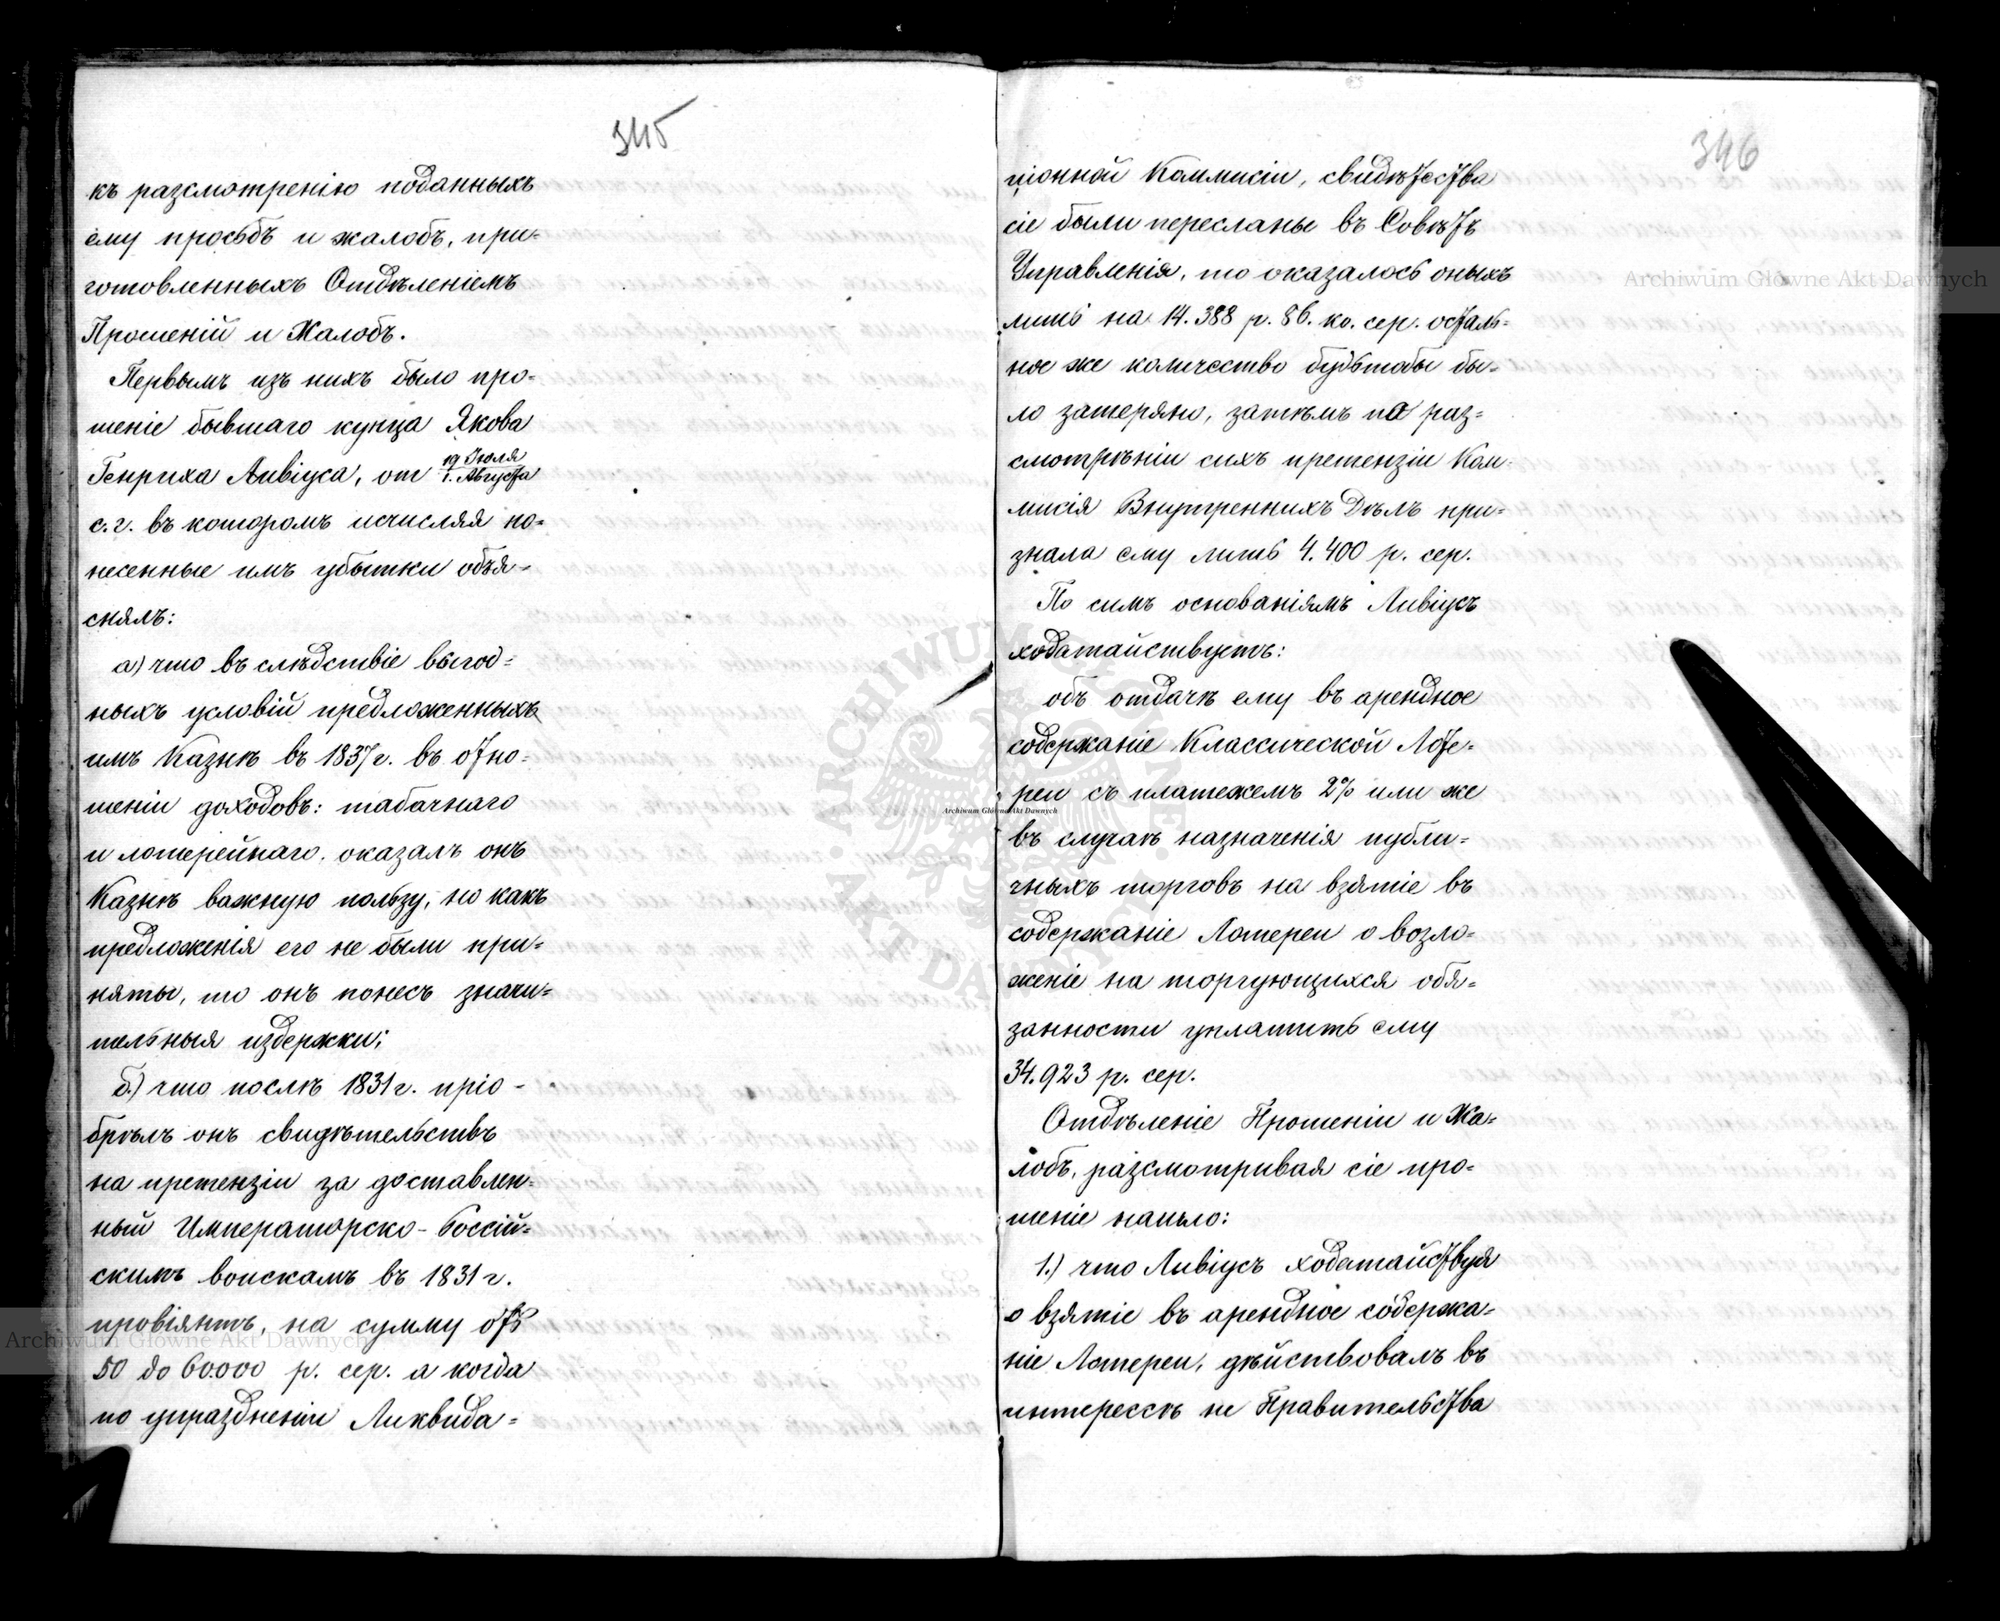 345
къ разсмотренію поданныхъ
ему просьбъ и жалобъ, при=
готовленныхъ Отдѣленіемъ
Прошеній и Жалобъ.
Первымъ изъ нихъ было про=
шеніе бывшаго купца Якова
Генриха Ливіуса, от 19 Іюля / 1. Августа
с. г. въ которомъ исчисляя по=
несенные имъ убытки объя=
снялъ:
а) что въ слѣдствіе выгод=
ныхъ условій предложенныхъ
имъ Казнѣ въ 1837 г. въ отно=
шеніи доходовъ: табачнаго
и лотерейнаго. оказалъ онъ
Казнѣ важную пользу, но какъ
предложенія его не были при=
няты, то онъ понесъ значи=
тельныя издержки;
б.) что послѣ 1831 г. пріо=
брѣлъ онъ свидѣтельствъ
на претензіи за доставлен=
ный Императорско-Россій=
скимъ воискамъ въ 1831 г.
провіянтъ, на сумму отъ
50 до 60.000 р. сер. а когда
по упраздненіи Ликвида=
346
ціонной Коммисіи, свидѣтества
сіе были пересланы въ Совѣтъ
Управленія, то оказалось оныхъ
лишь на 14.388 р. 86. ко. сер. осталь=
ное же количество будьтобы бы=
ло затеряно, затѣмъ по раз=
смотрѣніи сихъ претензіи Ком=
мисія Внутреннихъ Дѣлъ при=
знала ему лишь 4.400 р. сер.
По симъ основаніямъ Ливіусъ
ходатайствуетъ:
объ отдачѣ ему въ арендное
содержаніе Классической Лоте=
реи съ платежемъ 2% или же
въ случаѣ назначенія публи=
чныхъ торговъ на взятіе въ
содержаніе Лотереи о возло=
женіе на торгующихся обя=
занности уплатить ему
34.923 р. сер.
Отдѣленіе Прошеніи и Жа=
лобъ, разсмотривая сіе про=
шеніе нашло:
1.) что Ливіусъ ходатайствуя
о взятіе въ арендное содержа=
ніе Лотереи, дѣйствовалъ въ
интерессѣ не Правительства
Archiwum Główne Akt Dawnych
Archiwum Główne Akt Dawnych
Archiwum Główne Akt Dawnych
ARCHIWUM GŁÓWNE AKT DAWNYCH